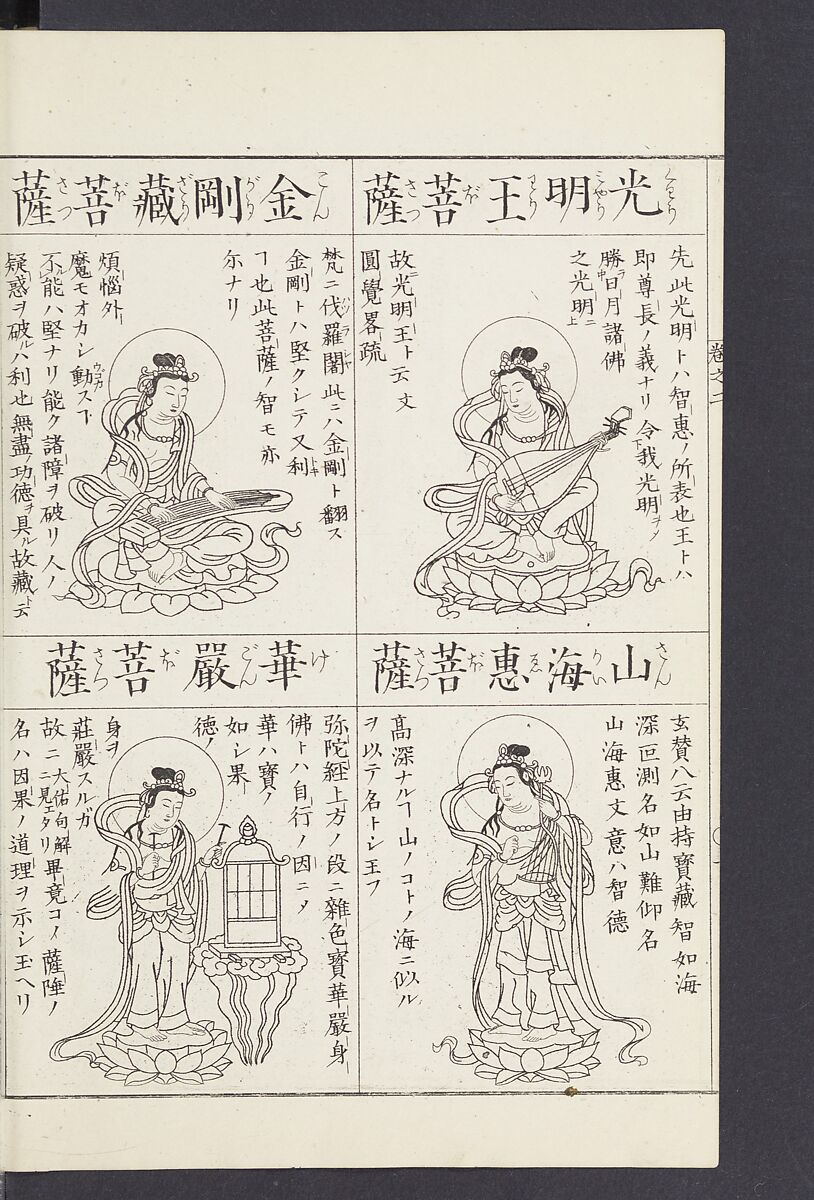 光明王菩薩
くわうみやうわうぼさつ
先此光明トハ智惠ノ所表也王トハ
即尊長ノ義ナリ令我光明ヲメ
勝日月諸佛
之光明ニ
故光明王ト云文
圓覺畧疏
金剛藏菩薩
こんがうざうぼさつ
梵ニ伐羅闍此ニハ金剛ト翻ス
金剛トハ堅クシテ又利
ヿ也此菩薩ノ智モ亦
尓ナリ
煩惱外
魔モオカシ動ス下
不能ハ堅ナリ能ク諸障ヲ破リ人ノ
疑惑ヲ破ルハ利也無盡ノ功德ヲ具ル故藏ト云
山海惠菩薩
さんかいゑぼさつ
玄賛八云由持寳藏智如海
深叵測名如山難仰名
山海惠文意ハ智德
高深ナルヿ山ノコトノ海ニ似ル
ヲ以テ名トシ玉フ
華嚴菩薩
けごんぼさつ
弥陀經上方ノ段ニ雜色寳華嚴身
佛トハ自行ノ因ニメ
華ハ寳ノ
如シ果
德ノ
身ヲ
莊嚴スルガ
故ニ大佑句解ニ見エタリ畢竟コノ薩埵ノ
名ハ因果ノ道理ヲ示シ玉ヘリ
卷之二